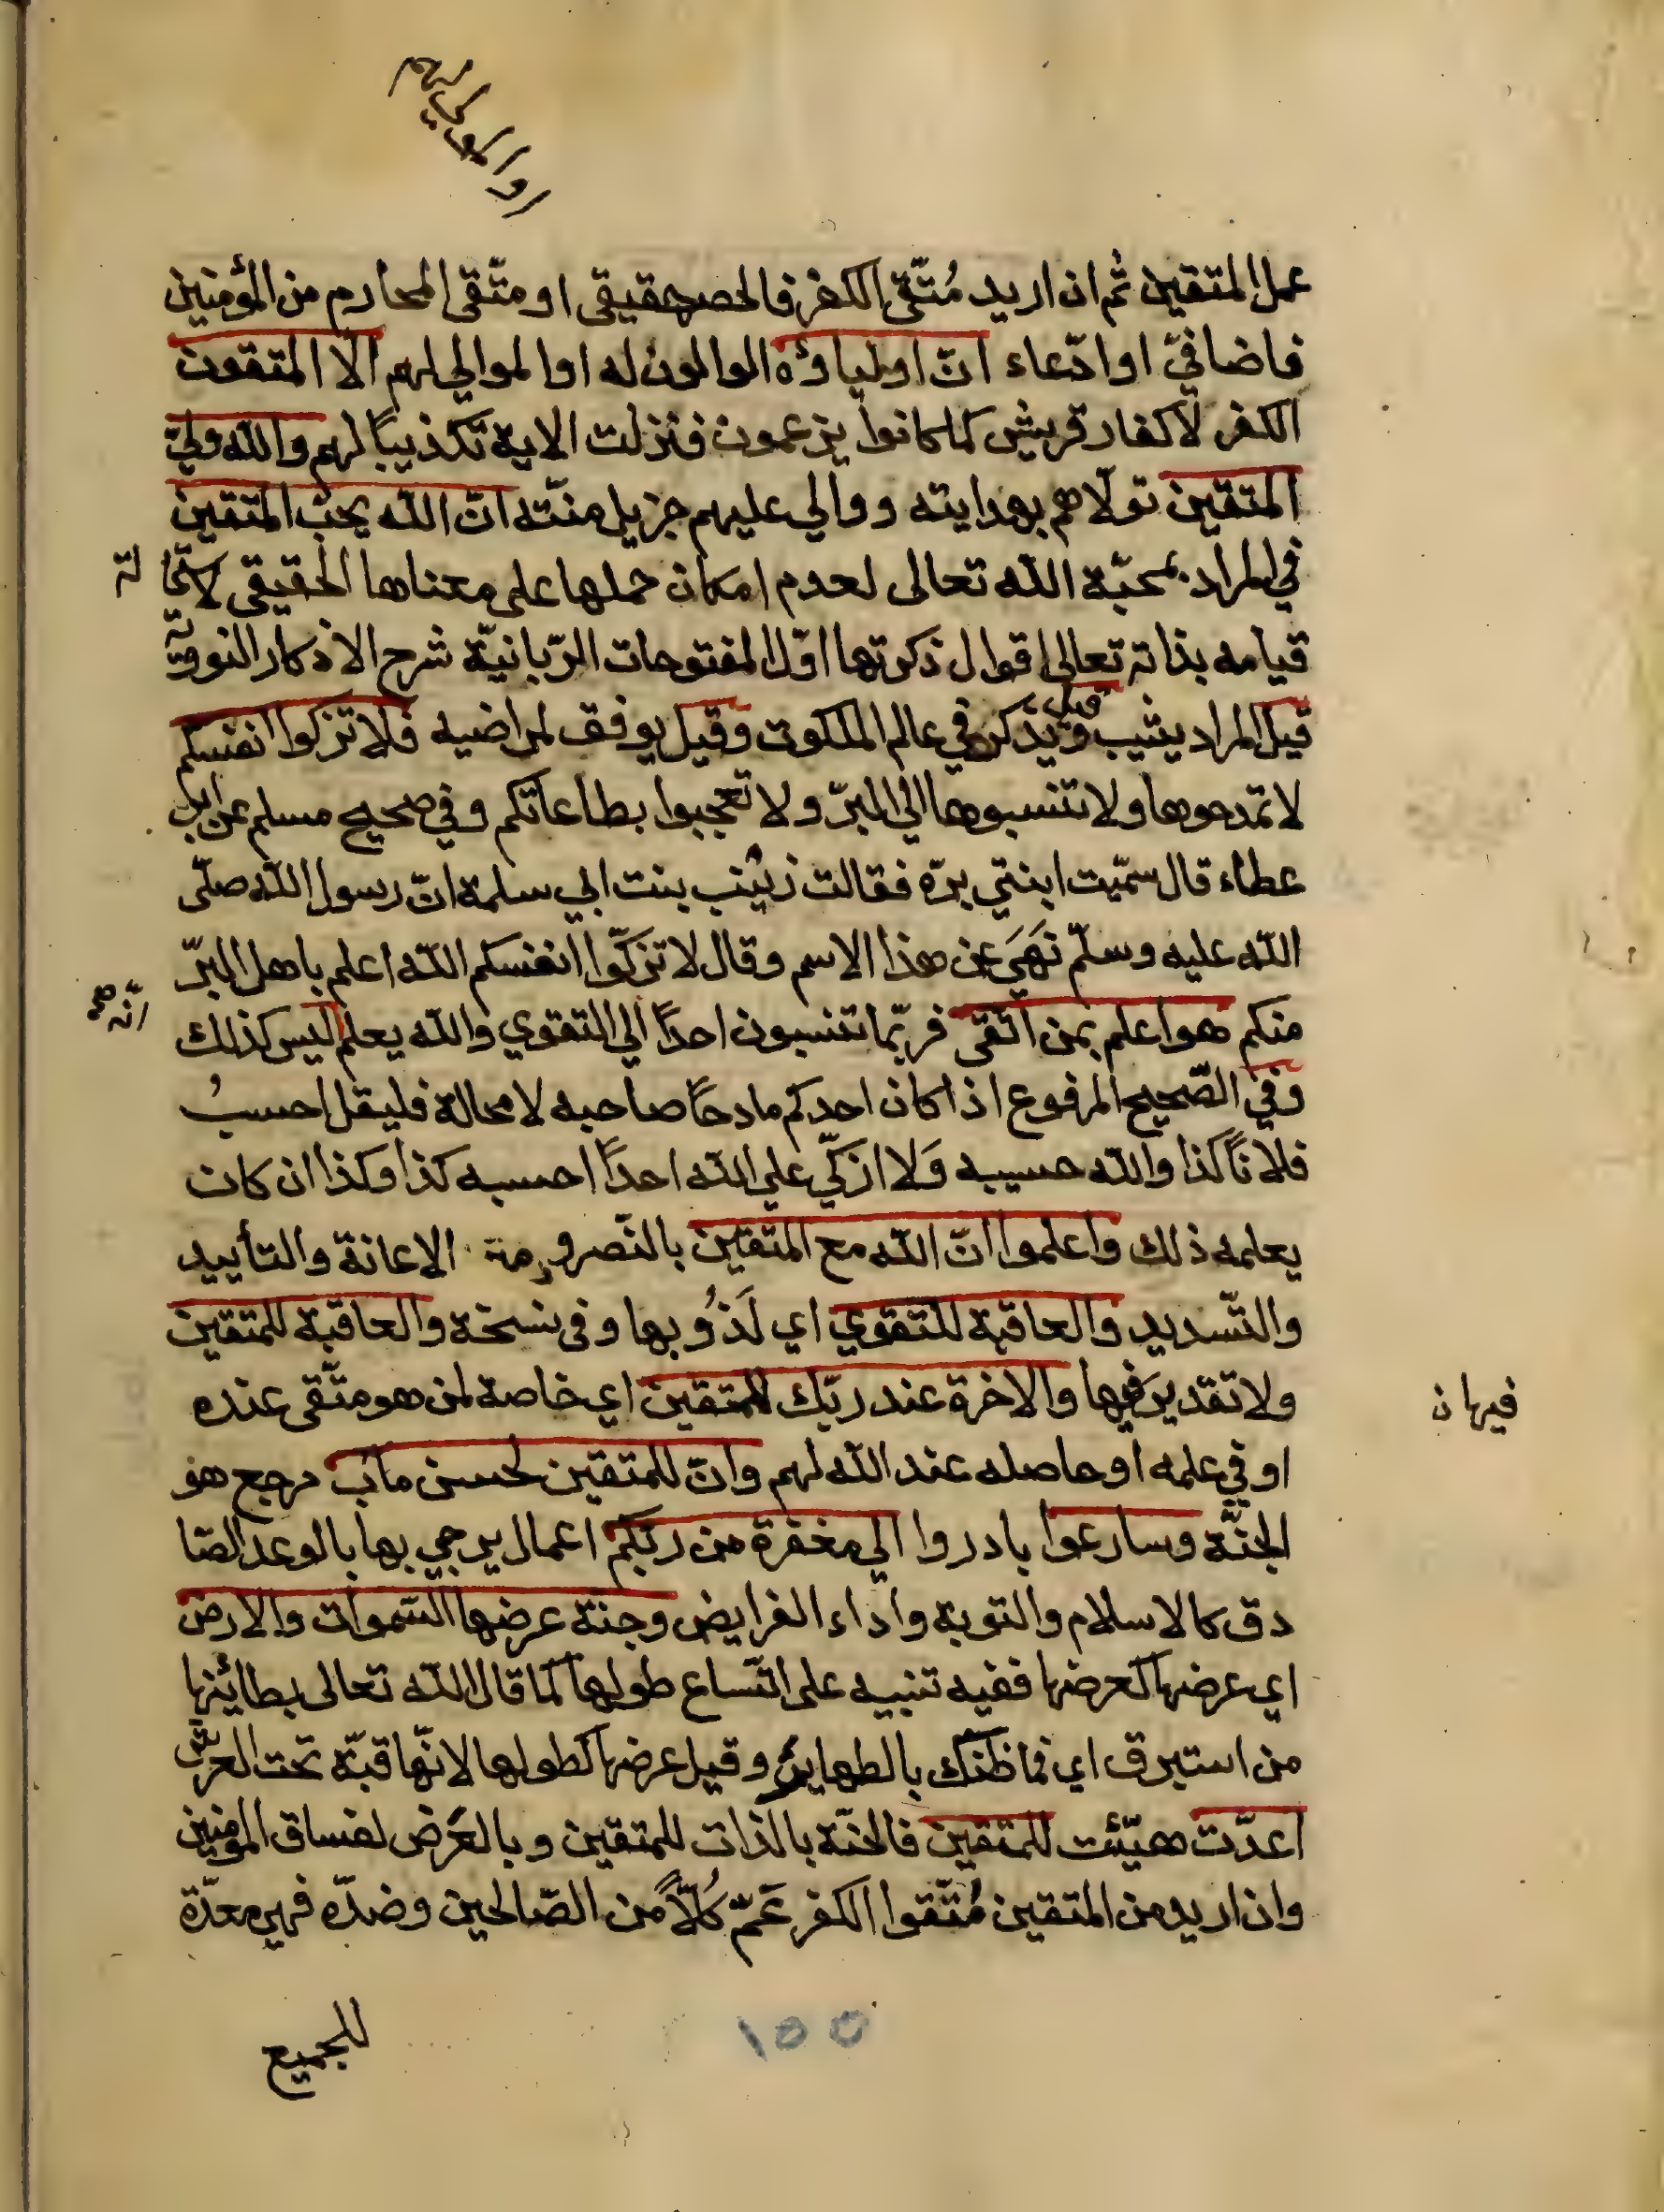 او الموالي لهم
عمل المتقين ثم ان اريد مُتّقى الكفر فالحصر حقيقي او متّقى المحارم من المؤمنين
فاضافيّ او ادّعاء انّ اولياؤه الموالون له او الموالي لهم الّا المتقون
الكفر لا كفار قريش كما كانوا يزعمون فنزلت الاية تكذيبًا لهم والله وليّ
المتقين تولّاهم بهدايته ووالي عليهم جزيل منّته انّ الله يحبّ المتقين
في المراد بمحبّة الله تعالى لعدم امكان حملها على معناها الحقيقي لاستحا لة
قيامه بذاته تعالى اقوال ذكرتها اوّل المفتوحات الرّبانيّة شرح الاذكار النوويّة
قيل المراد يثيب وقيل يذكر في عالم الملكوت وقيل يوفق لمراضيه فلا تزكوا انفسكم
لا تمدحوها ولا تنسبوها الي البرّ ولا تعجبوا بطاعاتكم وفي صحيح مسلم عن ابن
عطاء قال سمّيت ابنتي برّه فقالت زينب بنت ابي سلمة انّ رسول الله صلّى
الله عليه وسلّم نَهَىَ عن هذا الاسم وقال لا تزكّوا انفسكم الله اعلم باهل البرّ
منكم هو اعلم بمن اتّقى فربّما تنسبون احدًا الي التقوي والله يعلم ليس كذلك
انّه صح
وفي الصّحيح المرفوع اذا كان احدكم مادحًا صاحبه لا محالة فليقل احسبُ
فلانًا كذا والله حسيبه وَلا ازكّي على الله احدًا احسبه كذا وكذا ان كان
يعلمه ذلك واعلموا انّ الله مع المتقين بالنّصر و الاعانة والتأييد
والتّسديد والعاقبة للتقوي اي لَذَوُ بها وفى نسخة والعاقبة للمتقين
ولا تقدير فيها والاخرة عند ربّك للمتقين اي خاصة لمن هو متّقى عنده
فيها ن
او في علمه او حاصله عند الله لهم وانّ للمتقين لحسن مآب مرجع هو
الجنّة وسارعوا بادروا الي مغفرة من ربّكم اعمال يرجي بها بالوعد الصّا
دق كالاسلام والتوبة واداء الفرايض وجنة عرضها السّموات والارض
اي عرضها كعرضها ففيه تنبيه على اتّساع طولها كما قال الله تعالى بطائنها
من استبرق اي فما ظنّك بالطهاير وقيل عرضها كطولها لانّها قبّة تحت العرش
اعدّت هيّئت للمتقين فالجنّة بالذات للمتقين وبالعَرَض لفساق المومنين
وان اريد من المتقين مُتّقوا الكفر عَمّ كُلًّا من الصّالحين وضدّه فهي معدّة
للجميع
١٥٥